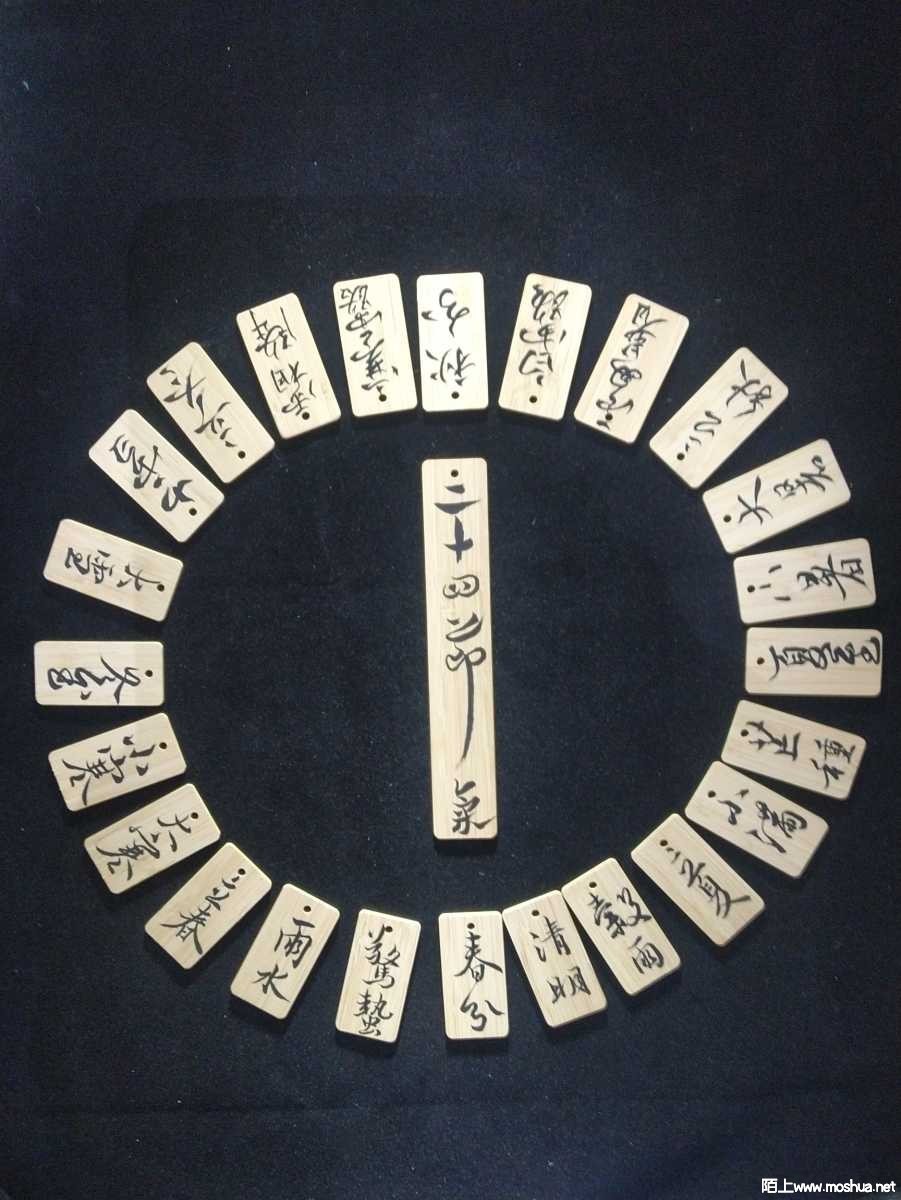 二十四節氣
立春
雨水
驚蟄
春分
清明
穀雨
立夏
小滿
芒種
夏至
小暑
大暑
立秋
處暑
白露
秋分
寒露
霜降
立冬
小雪
大雪
冬至
小寒
大寒
陌上www.moshua.net